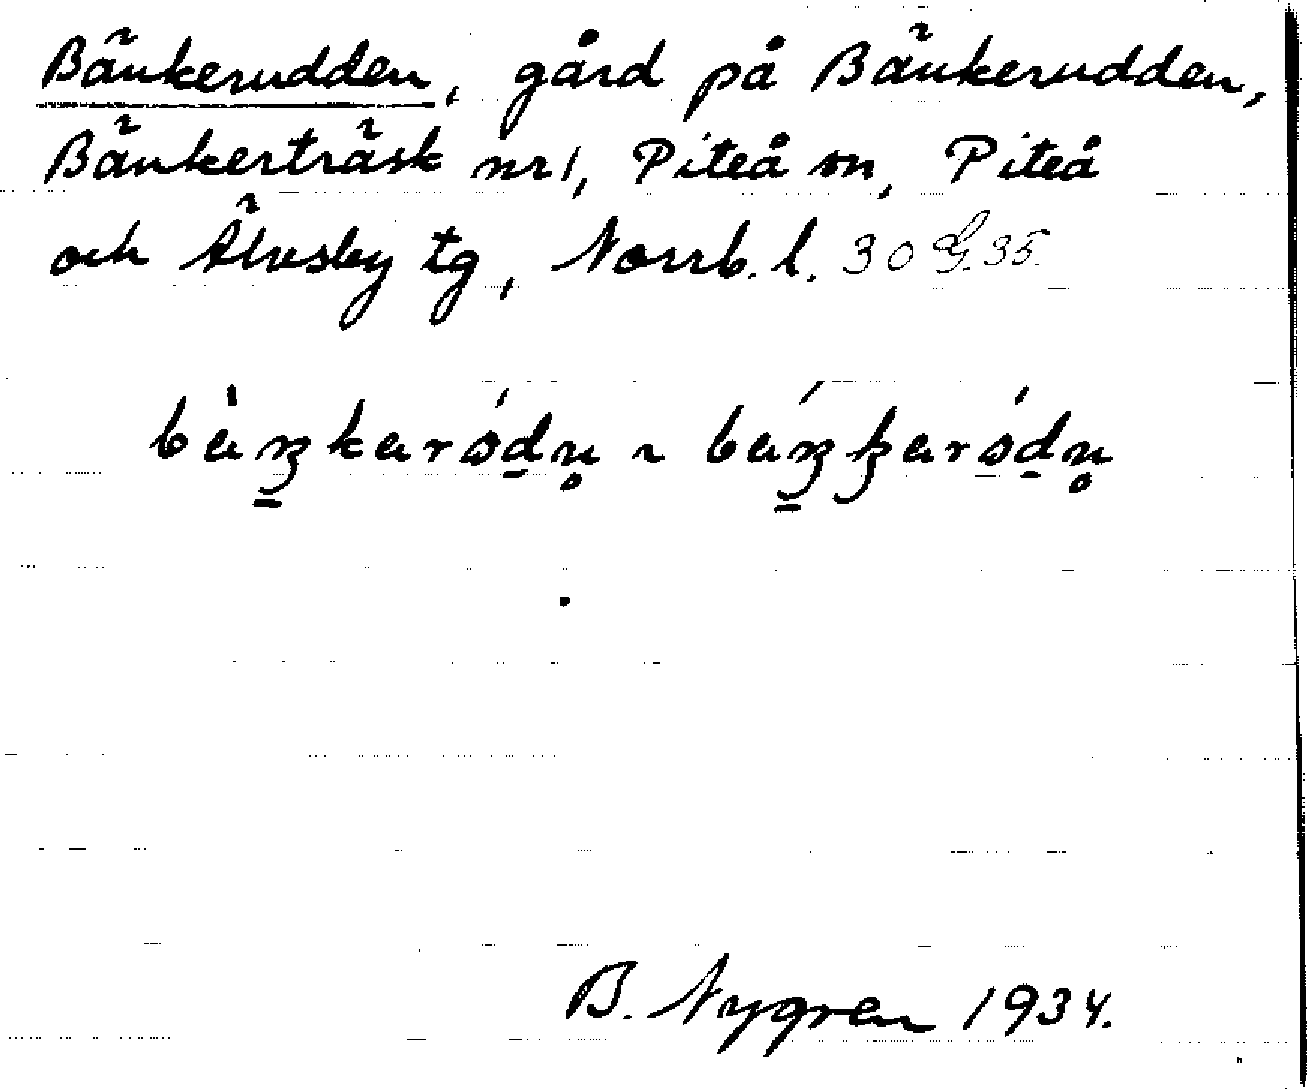 Bänkerudden, gård på Bänkerudden,
Bänkerträsk nr 1, Piteå sn, Piteå
och Älvsby tg, Norrb. l. 30 G. 35.
B. Nygren 1934.